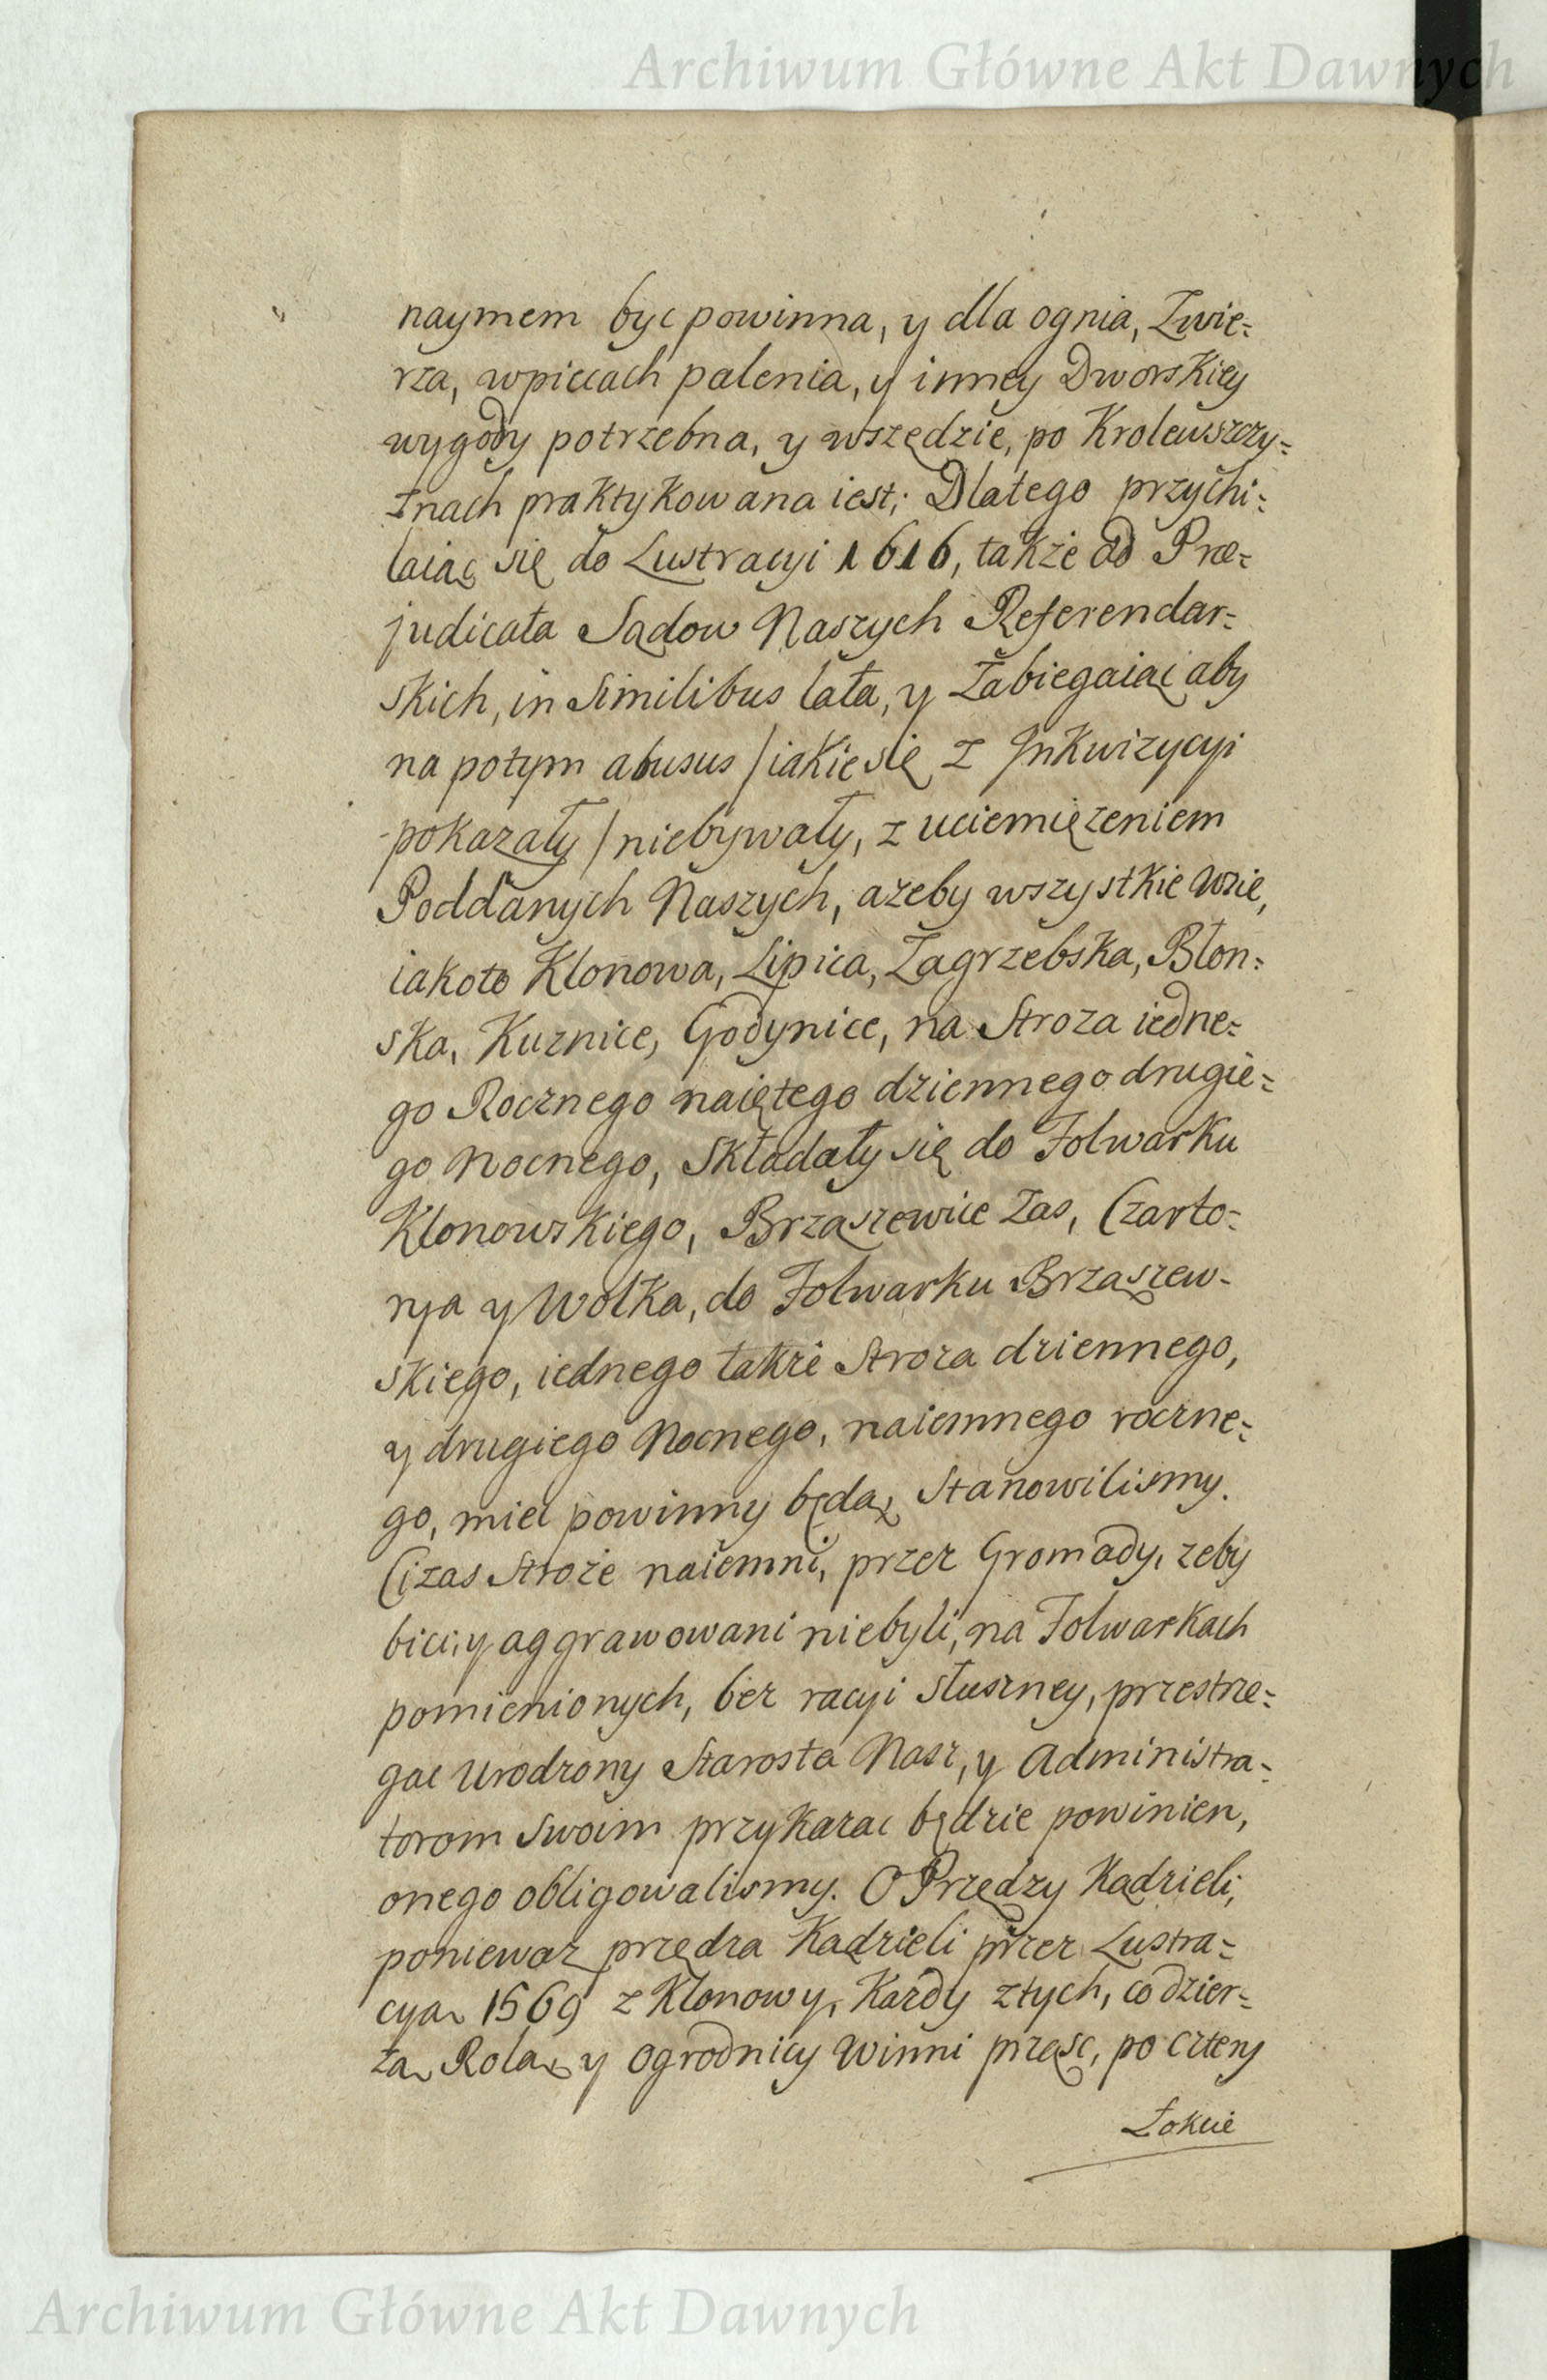 Archiwum Główne Akt Dawnych
naymem byc powinna, y dla ognia, Zwie=
rza, wpiecach palenia, y inney Dworskiey
wygody potrzebna, y wszędzie, po Krolewszczy=
znach praktykowana iest; Dlatego przychi=
laiąc się do Lustracyi 1616, także ad Præ=
judicata Sądow Naszych Referendar=
skich, in Similibus lata, y Zabiegaiąc aby
na potym abusus / iakie się z Jnkwizycyi
pokazały / niebywały, z uciemięzeniem
Poddanych Naszych, azeby wszystkie Wsie,
iakoto Klonowa, Lipica, Zagrzebska, Błon=
ska, Kuznice, Godynice, na Stroza iedne=
go Rocznego naiętego dziennego drugie=
go Nocnego, Składały się do Folwarku
Klonowskiego, Brząszewice Zas, Czarto=
rya y Wolka, do Folwarku Brząszew-
skiego, iednego takze Stroza dziennego,
y drugiego Nocnego, naiemnego roczne=
go, miec powinny będą, Stanowilismy.
Ci zas Stroże naiemni, przez Gromady, zeby
bici, y aggrawowani niebyli, na Folwarkach
pomienionych, bez racyi słuszney, przestrze=
gac Urodzony Starosta Nasz, y Administra=
torom Swoim przykazac będzie powinien,
onego obligowalismy. O Przędzy Kądzieli,
poniewaz przędza Kądzieli przez Lustra=
cyą 1569 z Klonowy, Kazdy z tych, co dzier=
zą Rolą y Ogrodnicy Winni prząsc, po cztery
Łokcie
Archiwum Główne Akt Dawnych